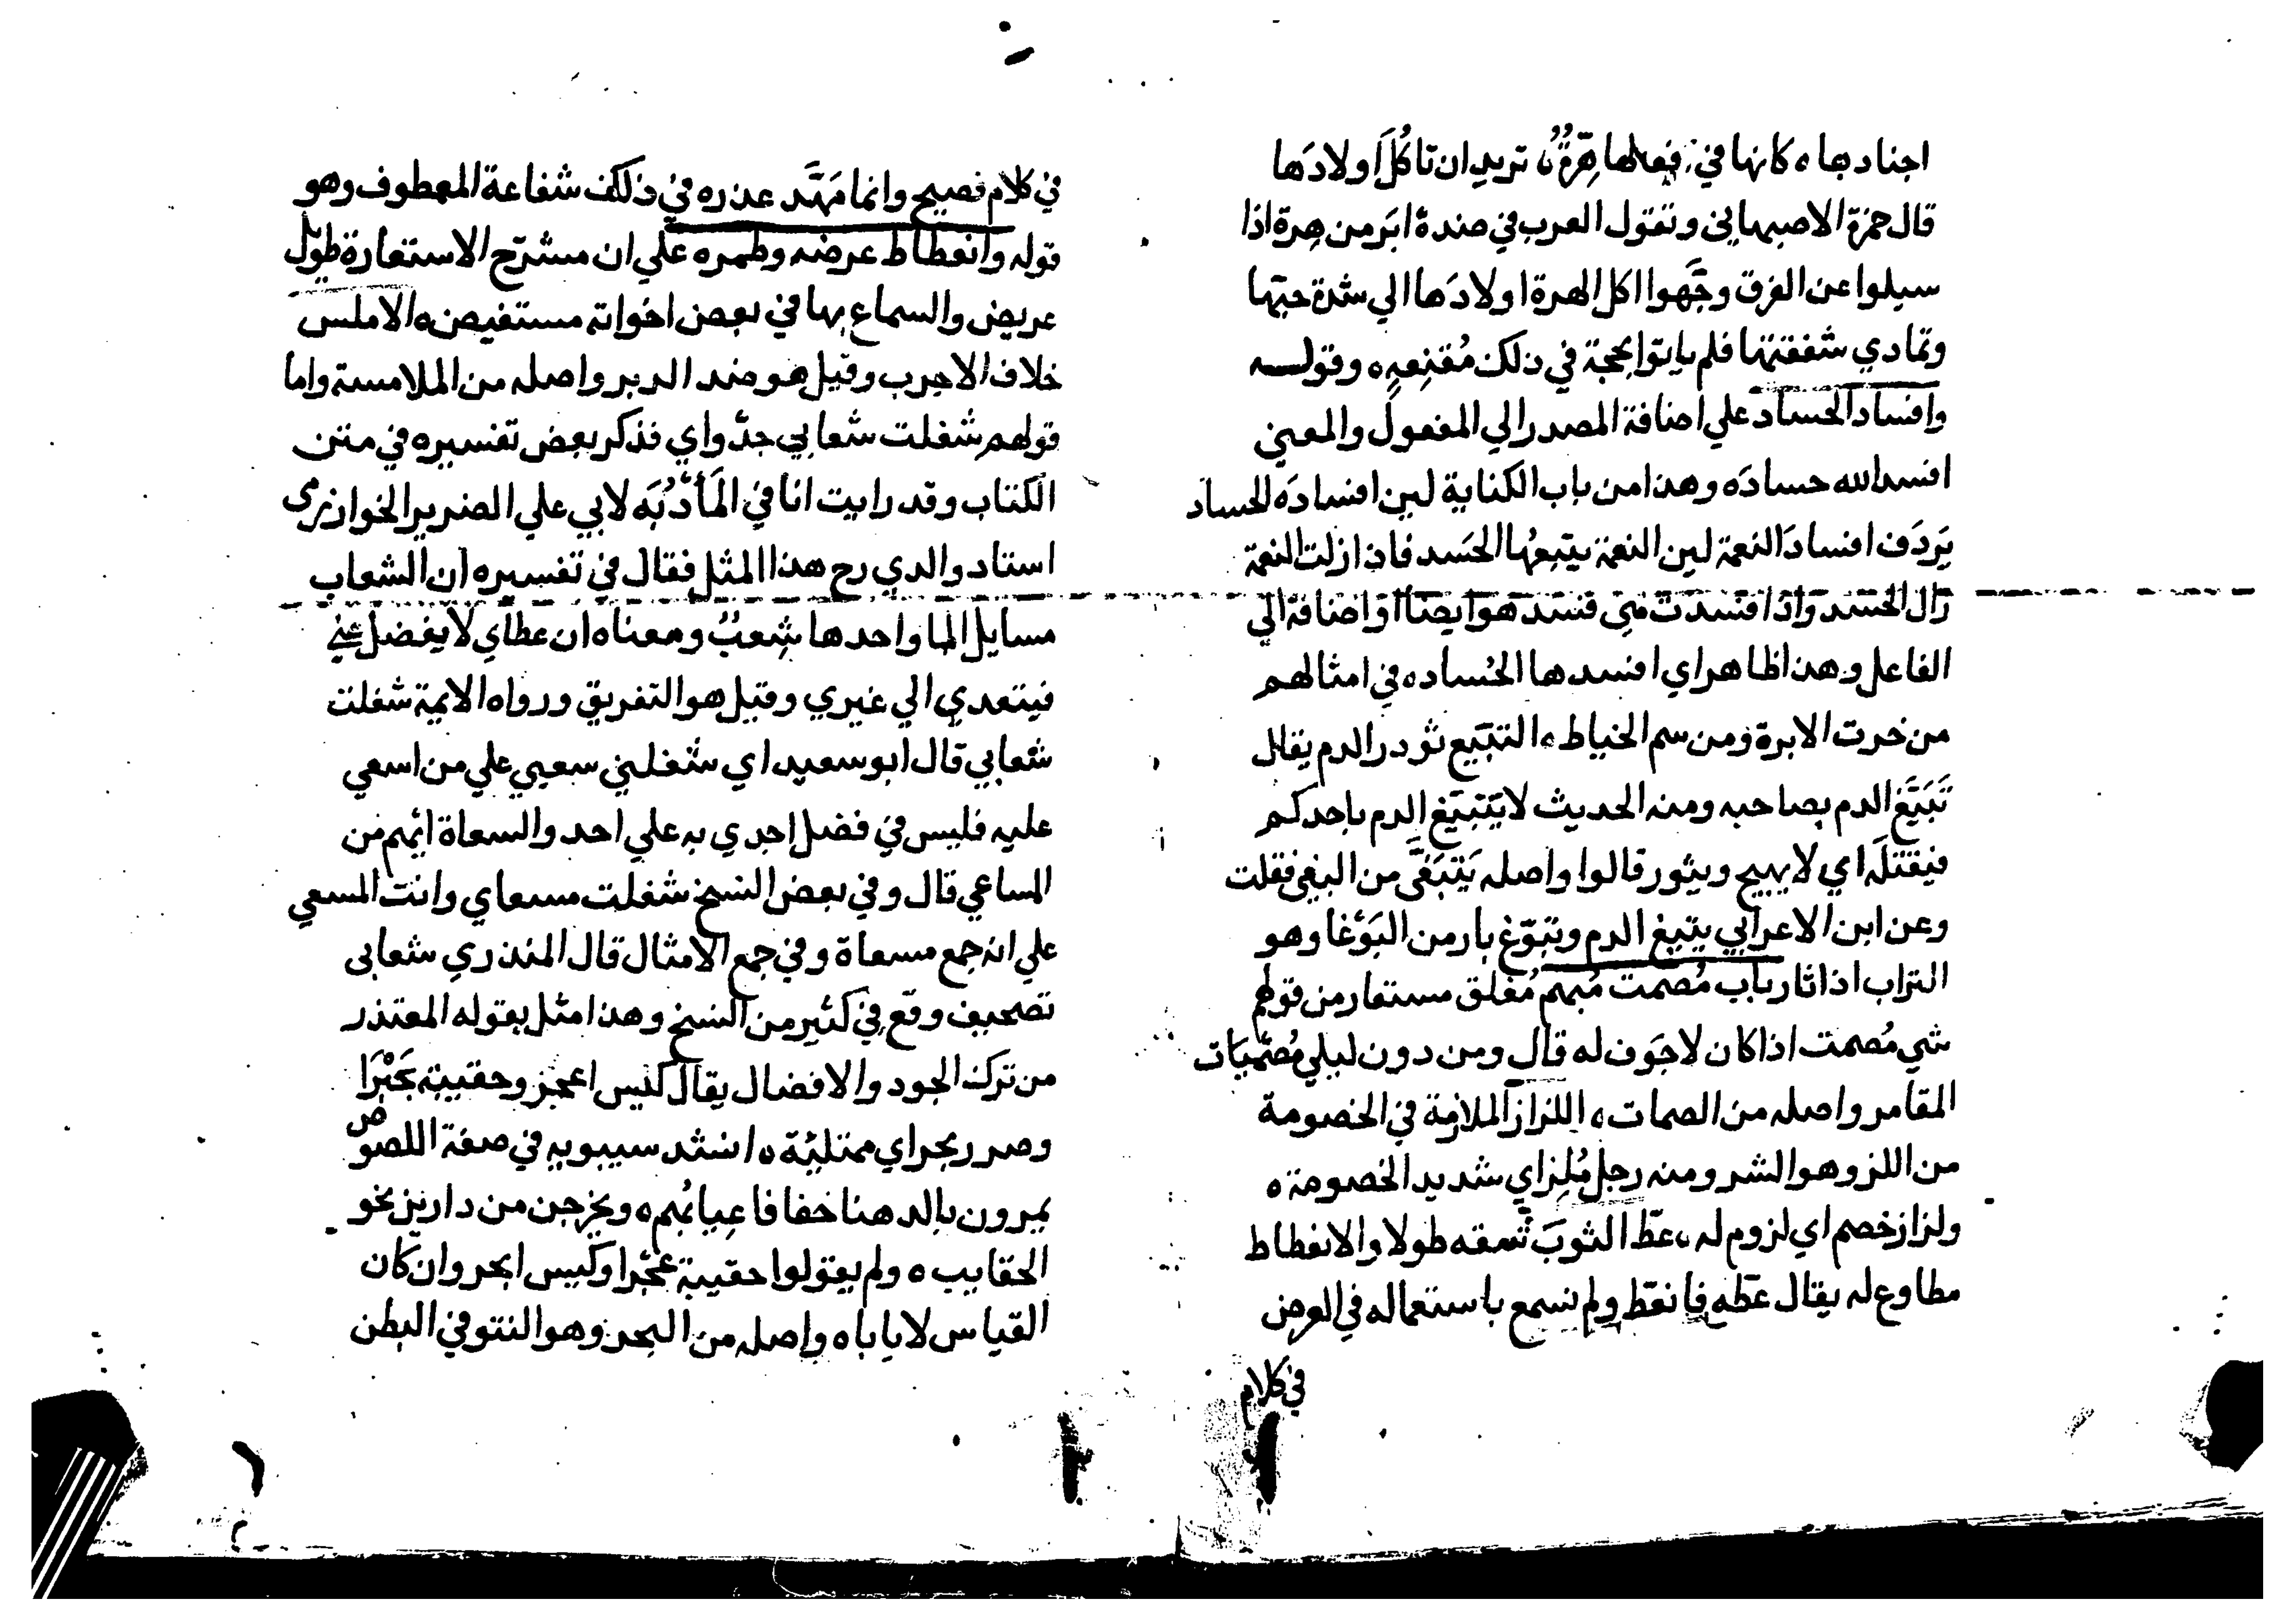 اجنادها ه كانها في فعالها هِرةٌ تريد ان تاكُلَ اولادَها
قال حمزة الاصبهاني وتقول العرب في ضده ابَر من هِرة اذا
سيلوا عن الفرق وجَّهوا اكل الهرة اولادَها الي شدة حبّها
وتمادي شفقتها فلم ياتوا بحجة في ذلك مُقنِعةٍ ه وقوله
وافساد الحساد علي اضافة المصدر الي المفعول والمعني
افسد الله حسادَه وهذا من باب الكناية لين افسادَه الحسادَ
يَردَف افسادَ النعمة لين النعمة يتبعُها الحَسد فاذا زلت النعمة
زال الحسد واذا فسدت هي فسد هو ايضا او اضافة الي
الفاعل وهذا ظاهر اي افسدها الحُساد ه في امثالهم
من خرت الابرة ومن سم الخياط ه التبيّغ ثوور الدم يقال
تَبَيَّغ الدم بصاحبه ومنه الحديث لا يَتبيّغ الدم باحدكم
فيقتلَه اي لا يهيج ويثور قالوا واصله يَتبَغّي من البغي فقلت
وعن ابن الاعرابي يتبغ الدم وتبوّغ بار من البَوْغا وهو
التراب اذا ثار باب مُصمت مُبهم مُغلق مستعار من قولهم
شي مُصمت اذا كان لا جَوف له قال ومن دون ليلي مُصمَتات
المقامر واصله من الصمات ه اللزاز الملازمة في الخصومة
من اللز وهو الشر ومنه رجل مُلِز اي شديد الخصومة ه
ولزاز خصم اي لزوم له ه عطّ الثوبَ شقه طولا والانعطاط
مطاوع له يقال عطّه فانعَطّ ولم نسمع باستعماله في العرض
في كلام
في كلام فصيح وانما مَهَّد عذره في ذلك شفاعة المعطوف وهو
قوله وانعطاط عرضه وطمره علي ان مسرّح الاستعارة طويل
عريض والسماع بها في بعض اخواته مستفيض ه الاملس
خلاف الاجرب وقيل هو ضد الدبر واصله من الملامسة واما
قولهم شغلت شعابي جدواي فذكر بعض تفسيره في متن
الكتاب وقد رايت انا في المَأدُبَه لابي علي الضرير الخوارزمي
استاد والدي رح هذا المثل فقال في تفسيره ان الشعاب
مسايل الما واحدها شِعبٌ ومعناه ان عطاي لا يفضل عني
فيتعدي الي غيري وقيل هو التفريق ورواه الايمة شغلت
شعابي قال ابو سعيد اي شغلني سعيي علي من اسعي
عليه فليس في فضل اجدي به علي احد والسعاة ايهم من
المساعي قال وفي بعض النسخ شغلت مسعاي وانت المسعي
علي انه جمع مسعاة وفي جمع الامثال قال المنذري شعابي
تصحيف وقع في كثير من النسخ وهذا مثل يقوله المعتذر
من ترك الجود والافضال يقال كيس اعجز وحقيبة بَجْرَا
وصرر بجر اي ممتلئة ه انشد سيبويه في صفة اللصوص
يمرون بالدهنا خفافا عِيابُهم ه ويخرجن من دارين بجر
الحقايب ه ولم يقولوا حقيبة عجرا وكيس ابجر وان كان
القياس لا ياباه واصله من البجر وهو النتو في البطن